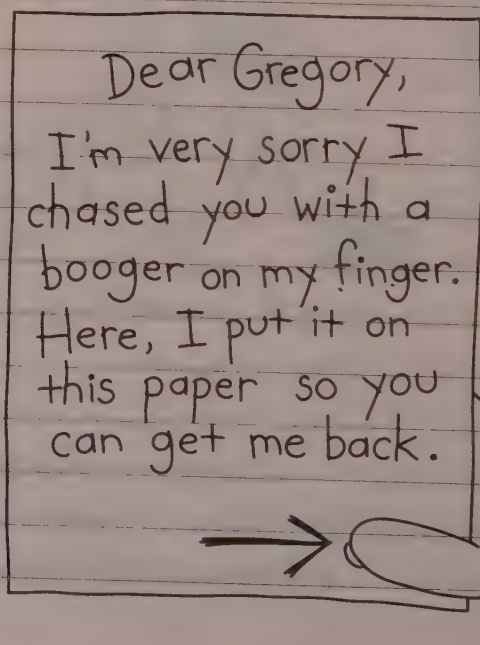 Dear Gregory,
I'm very sorry I
chased you with a
booger on my finger.
Here, I put it on
this paper so you
can get me back.